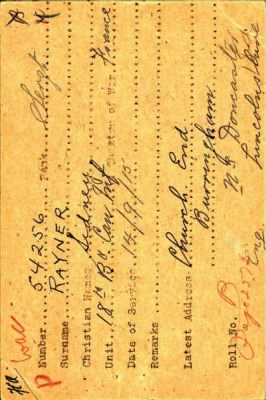 Wall
Number 54256 Rank
Surname RAYNER
Christian Names Sidney
Unit 18th Bn Can Inf Theatre of War France
Date of Service 14/9/15
Remarks
Latest Address Church End
Burringham
Nr Doncaster
Lincolnshire
Roll No. B Eng